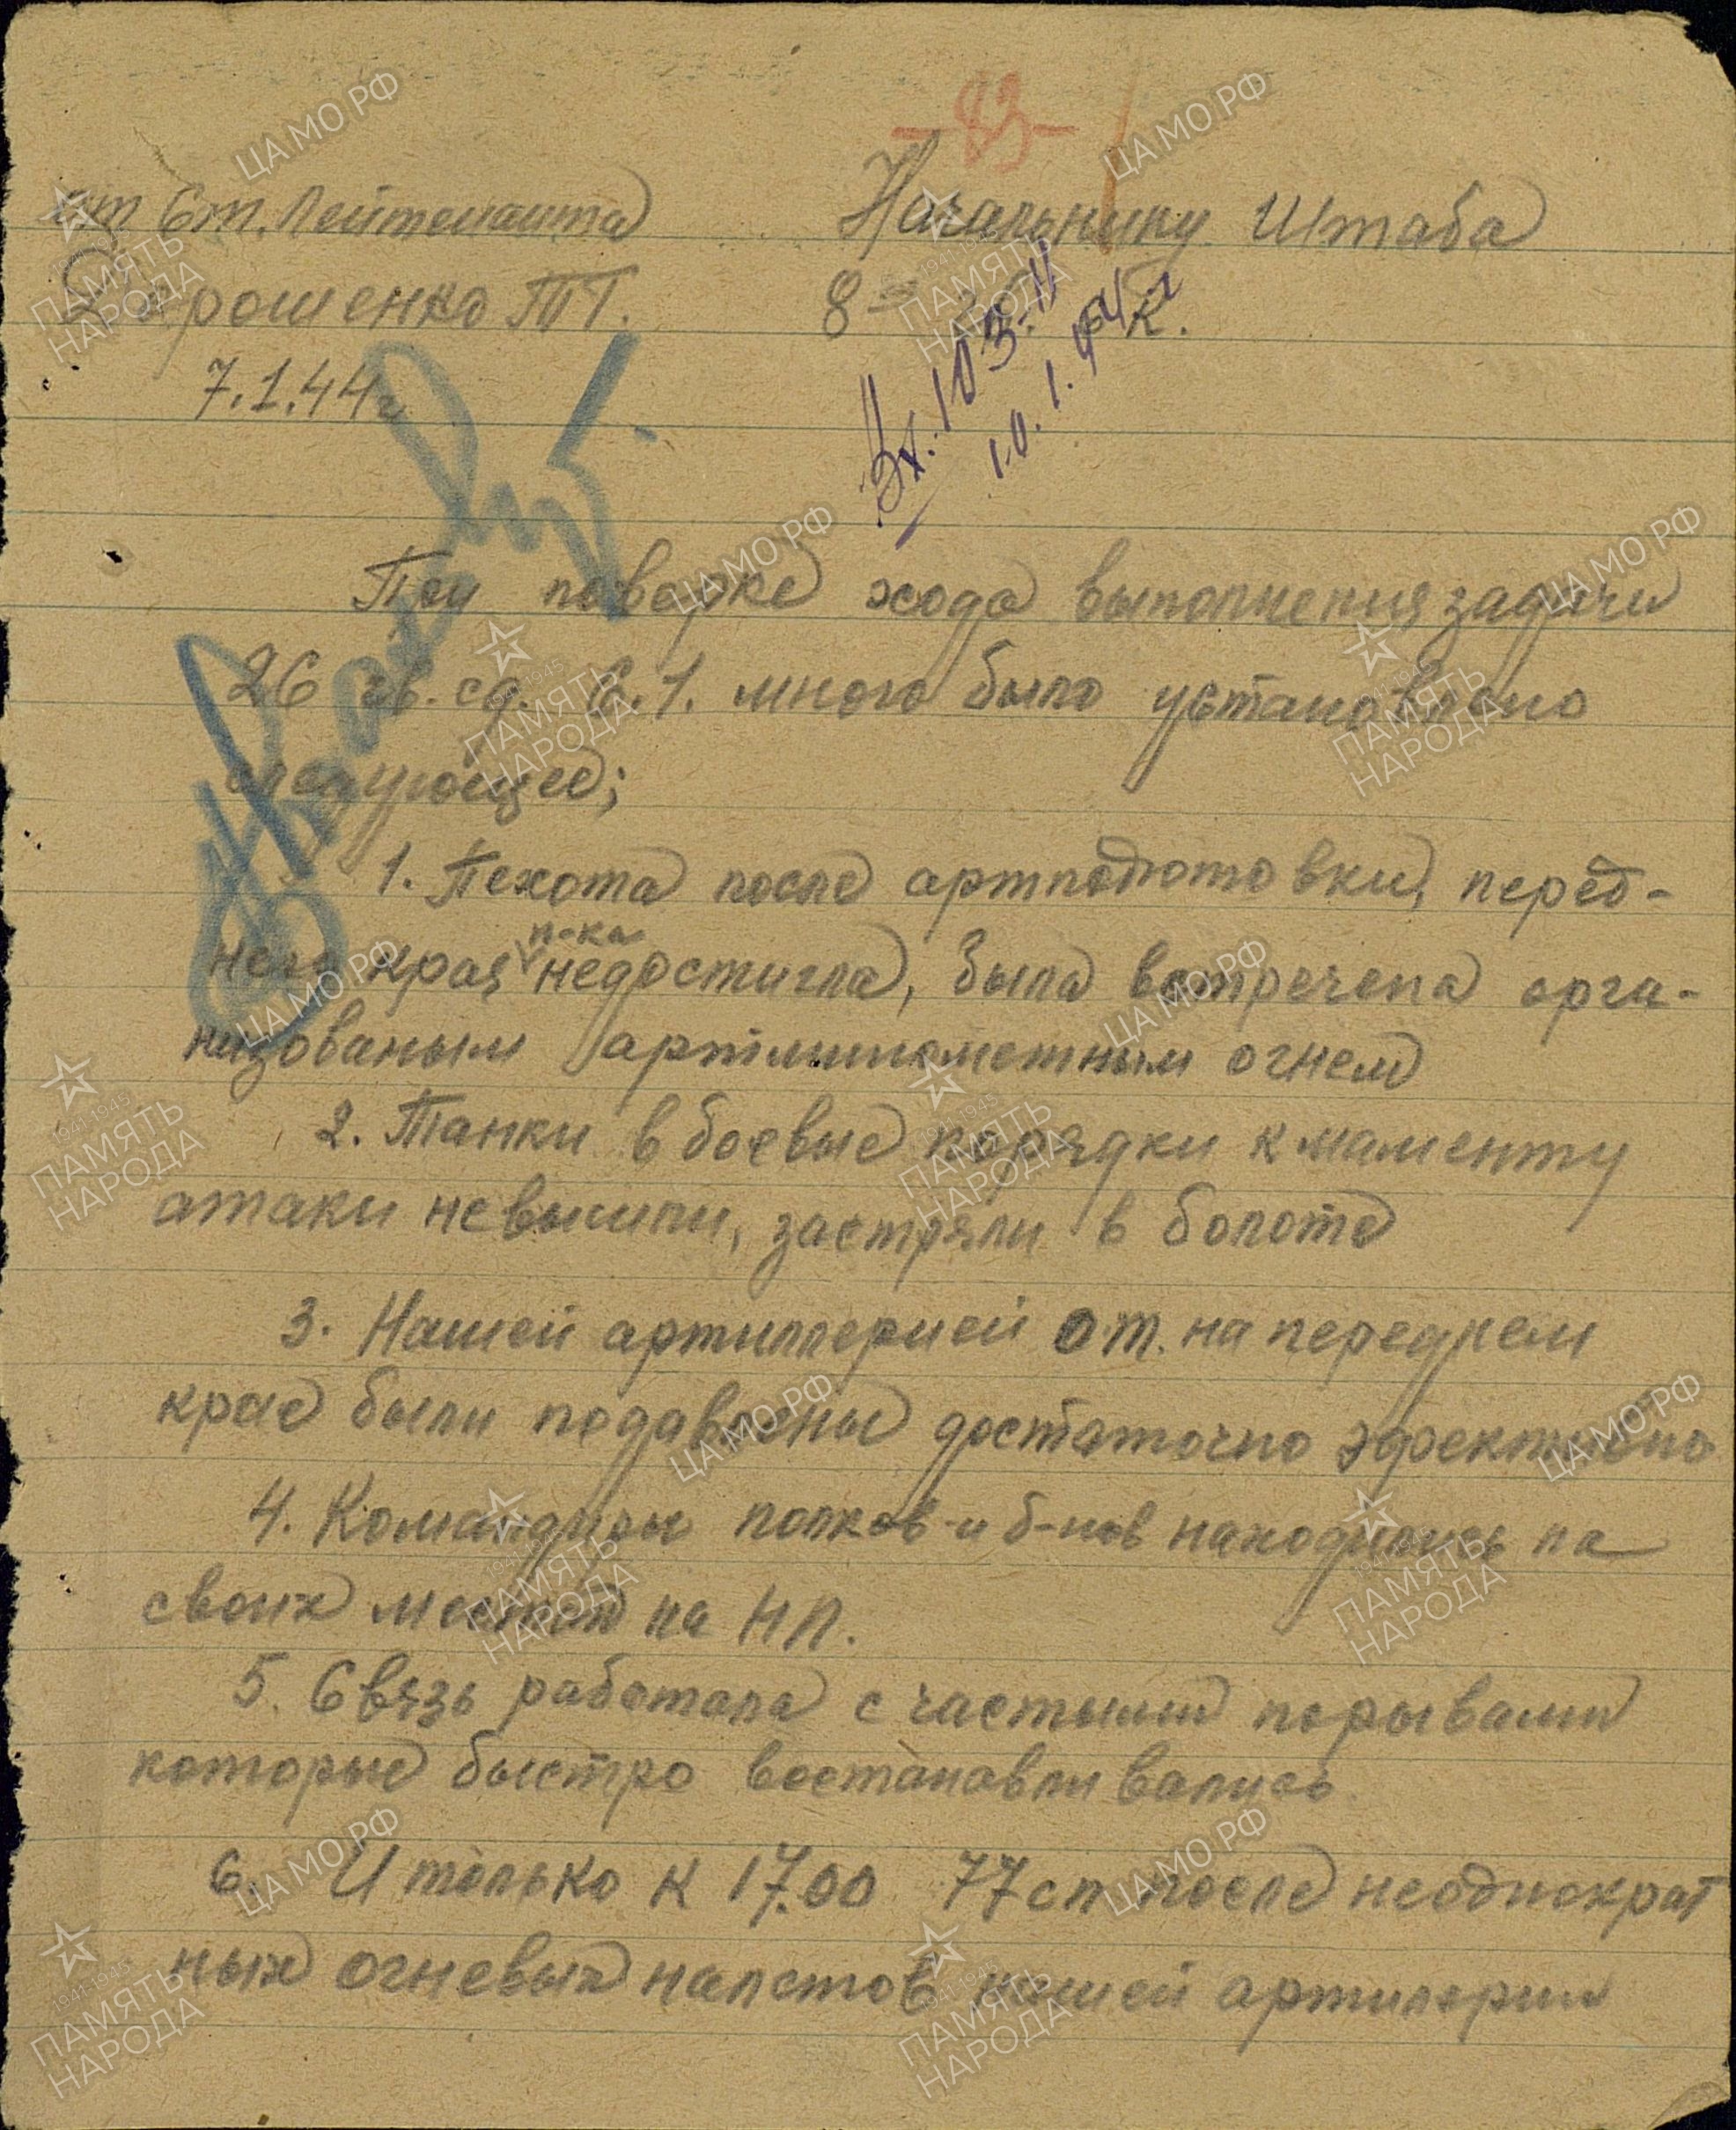 -83-
от Ст. Лейтенанта
Дорошенко Т.Г.
7.1.44г
Начальнику Штаба
8 гв. ск.
Вх. 103-11
10.1.44г
При поверке хода выполнения задачи
26 гв. сд. 6.1. мною было установлено
следующее;
1. Пехота после артподготовки, перед-
него края п-ка недостигла, была встречена орга-
низованым артминометным огнем
2. Танки в боевые порядки к маменту
атаки невышли, застряли в болоте
3. Нашей артиллерией о.т. на переднем
крае были подавлены достаточно эфективно
4. Командиры полков и б-нов находились на
своих местах на НП.
5. Связь работала с частыми порывами
которые быстро востанавливались
6. И только к 17.00 77 сп после неоднократ
ных огневых налетов нашей артилерии
ЦАМО РФ
1941-1945
ПАМЯТЬ
НАРОДА